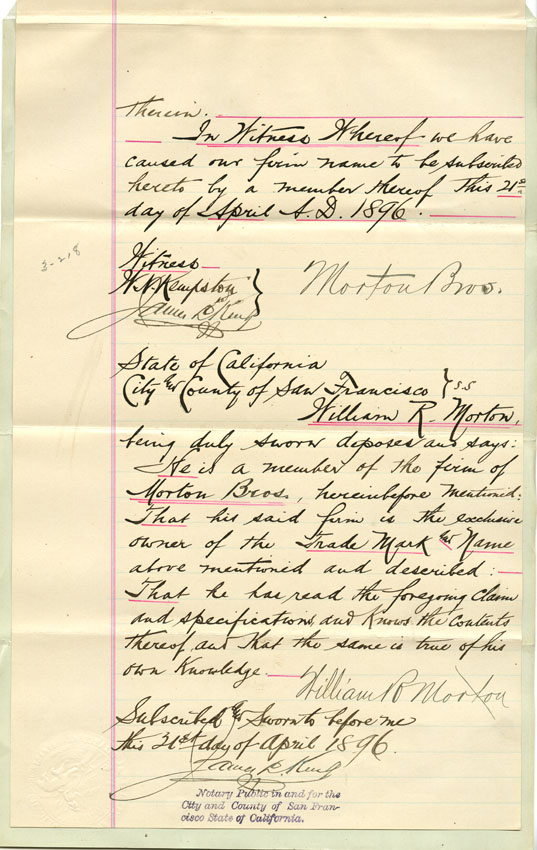 therein.
In Witness Whereof we have
caused our firm name to be subscribed
hereto by a member thereof this 21st
day of April A.D. 1896.
3-218
Witness
H.N. Kempston
James L. King
Morton Bros.
State of California
City & County of San Francisco } S.S
William R. Morton,
being duly sworn deposes and says:
He is a member of the firm of
Morton Bros., hereinbefore mentioned:
That his said firm is the exclusive
owner of the Trade Mark & Name
above mentioned and described:
That he has read the foregoing claim
and specifications, and knows the contents
thereof, and that the same is true of his
own knowledge.
William R Morton
Subscribed & Sworn to before me
this 21st day of April 1896.
James L. King
Notary Public in and for the
City and County of San Fran-
cisco State of California.